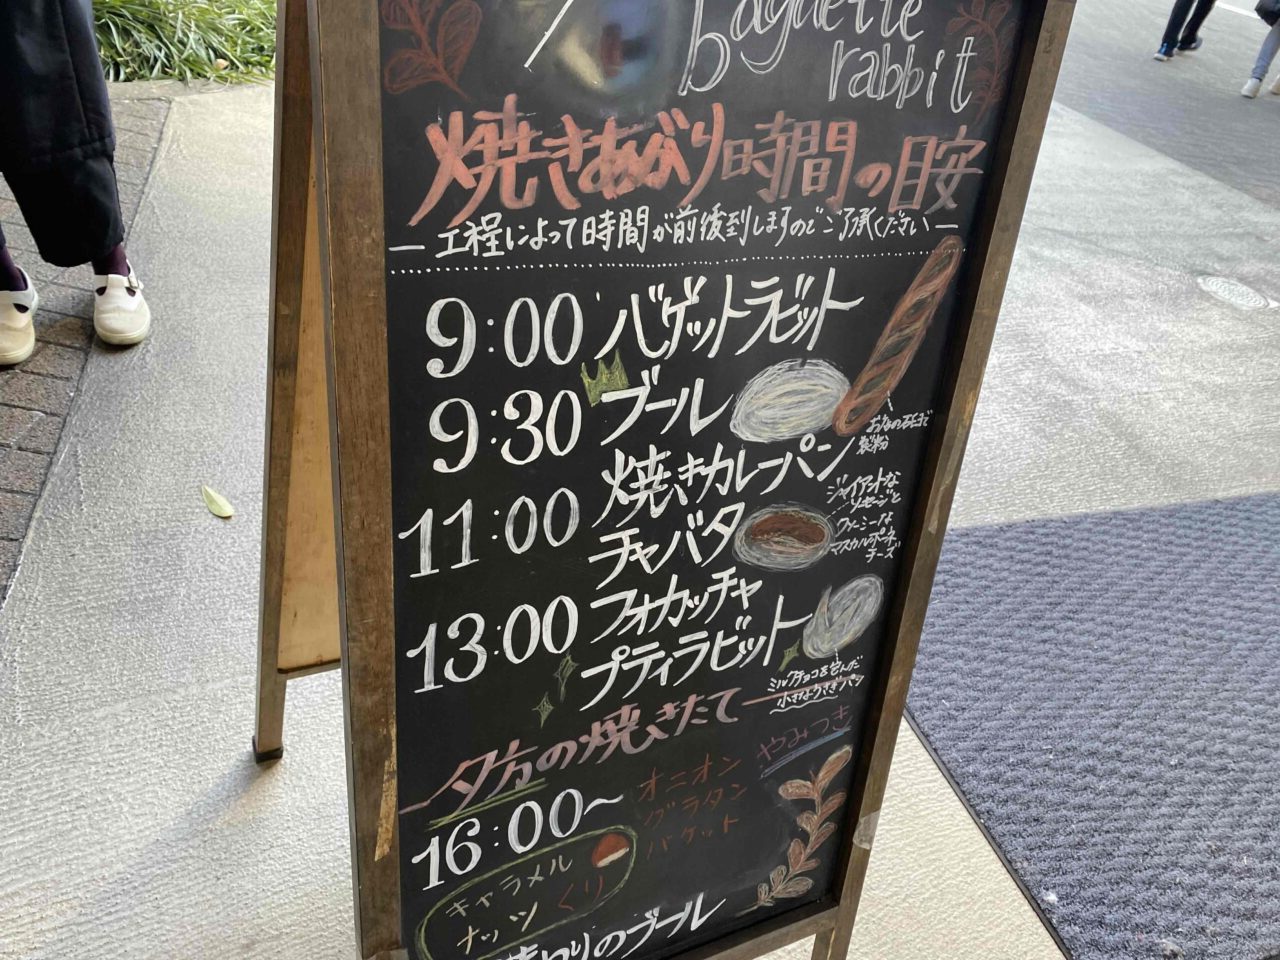 baguette
rabbit
焼きあがり時間の目安
工程によって時間が前後致しますのでご了承ください
9:00 バゲットラビット
9:30 ブール
お店の石臼で
製粉
11:00 焼きカレーパン
チャバタ
ジャイアントな
ソーセージと
クリーミーな
マスカルポーネ
チーズ
13:00 フォカッチャ
プティラビット
ミルクチョコを包んだ
小さなうさぎパン
夕方の焼きたて
16:00～
オニオン
グラタン
バケット
やみつき
キャラメル
ナッツ くり
のブール